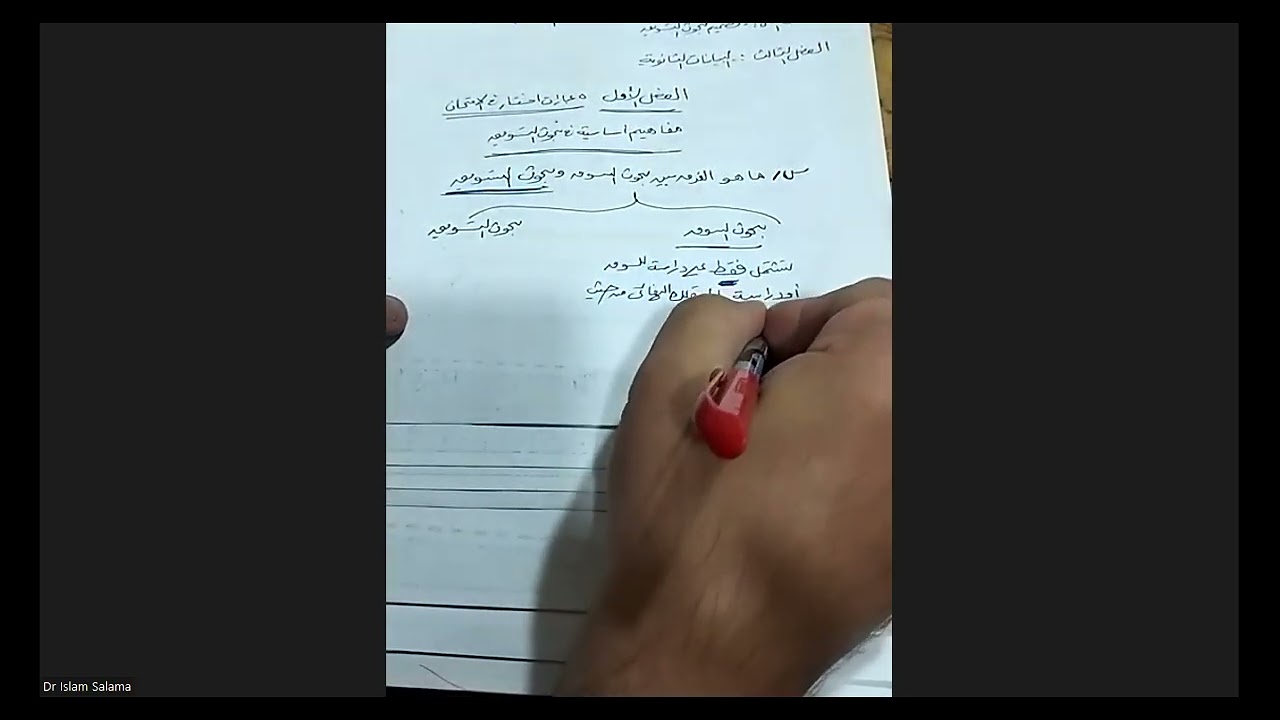 تصميم بحوث التسويق
الفصل الثالث :- البيانات الثانوية
الفصل الأول ٥ عبارات اختار في الامتحان
مفاهيم اساسية في بحوث التسويق
س/ ما هو الفرق بين بحوث السوق وبحوث التسويق
بحوث السوق
بحوث التسويق
تشتمل فقط على دراسة السوق
أو دراسة النهائي من حيث
Dr Islam Salama